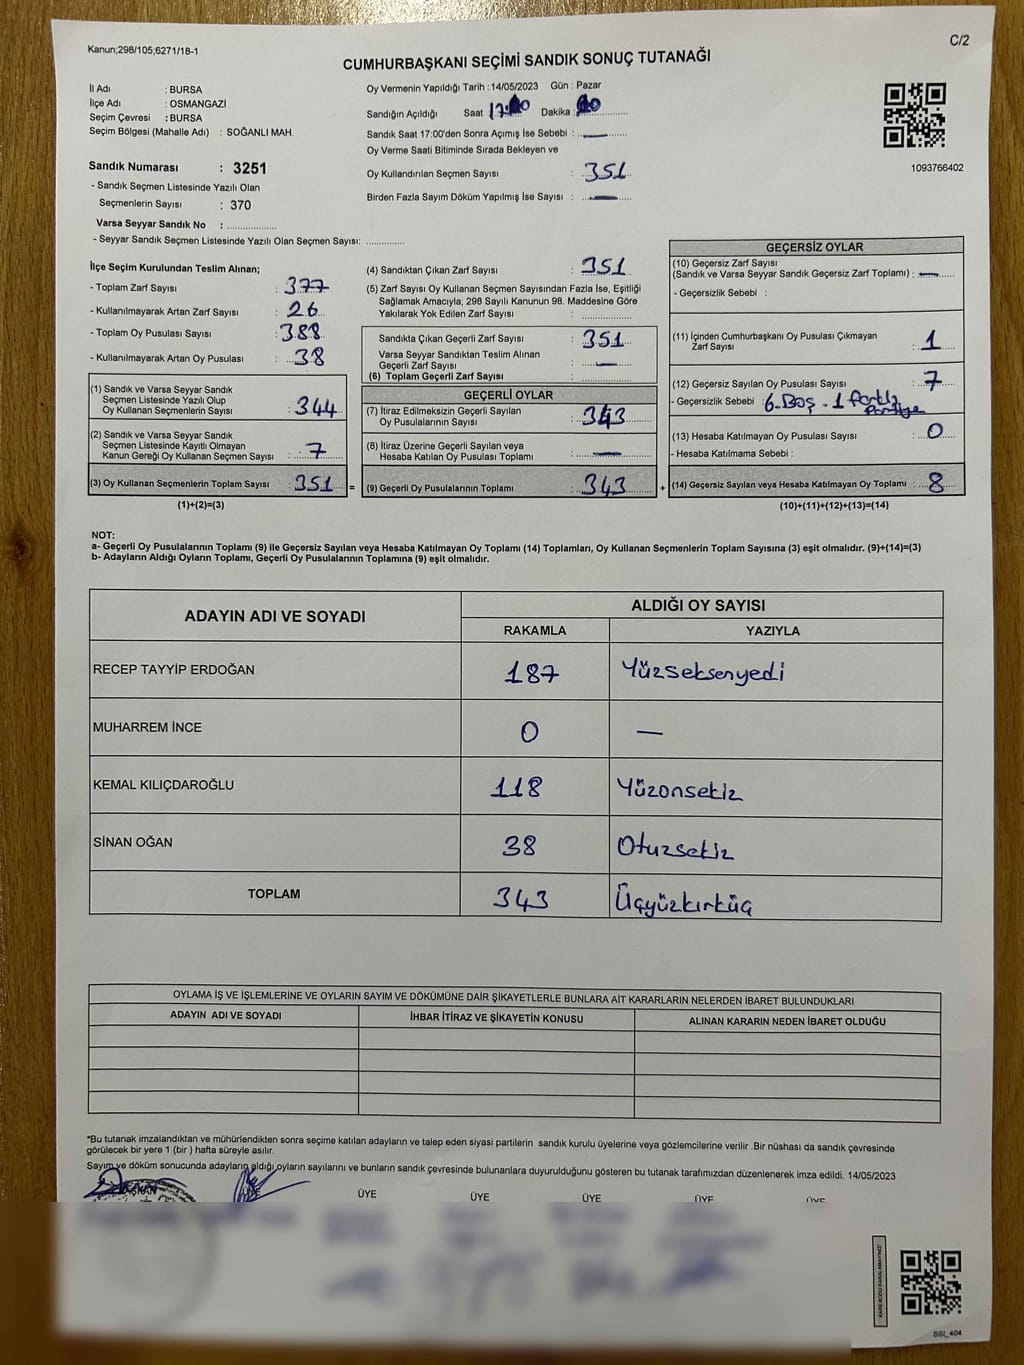 Kanun;298/105;6271/18-1
C/2
CUMHURBAŞKANI SEÇİMİ SANDIK SONUÇ TUTANAĞI
İl Adı : BURSA
İlçe Adı : OSMANGAZİ
Seçim Çevresi : BURSA
Seçim Bölgesi (Mahalle Adı) : SOĞANLI MAH.
Oy Vermenin Yapıldığı Tarih : 14/05/2023 Gün : Pazar
Sandığın Açıldığı Saat Dakika :
Sandık Saat 17:00'den Sonra Açımış İse Sebebi : —
Oy Verme Saati Bitiminde Sırada Bekleyen ve
Oy Kullandırılan Seçmen Sayısı : 351
Birden Fazla Sayım Döküm Yapılmış İse Sayısı : —
1093766402
Sandık Numarası : 3251
- Sandık Seçmen Listesinde Yazılı Olan
Seçmenlerin Sayısı : 370
Varsa Seyyar Sandık No : ................
- Seyyar Sandık Seçmen Listesinde Yazılı Olan Seçmen Sayısı: .............
İlçe Seçim Kurulundan Teslim Alınan;
- Toplam Zarf Sayısı : 377
- Kullanılmayarak Artan Zarf Sayısı : 26
- Toplam Oy Pusulası Sayısı : 388
- Kullanılmayarak Artan Oy Pusulası : 38
(1) Sandık ve Varsa Seyyar Sandık
Seçmen Listesinde Yazılı Olup
Oy Kullanan Seçmenlerin Sayısı : 344
(2) Sandık ve Varsa Seyyar Sandık
Seçmen Listesinde Kayıtlı Olmayan
Kanun Gereği Oy Kullanan Seçmen Sayısı : 7
(3) Oy Kullanan Seçmenlerin Toplam Sayısı : 351 =
(1)+(2)=(3)
(4) Sandıktan Çıkan Zarf Sayısı : 351
(5) Zarf Sayısı Oy Kullanan Seçmen Sayısından Fazla İse, Eşitliği
Sağlamak Amacıyla; 298 Sayılı Kanunun 98. Maddesine Göre
Yakılarak Yok Edilen Zarf Sayısı : ................
Sandıkta Çıkan Geçerli Zarf Sayısı : 351
Varsa Seyyar Sandıktan Teslim Alınan
Geçerli Zarf Sayısı : —
(6) Toplam Geçerli Zarf Sayısı : ................
GEÇERLİ OYLAR
(7) İtiraz Edilmeksizin Geçerli Sayılan
Oy Pusulalarının Sayısı : 343
(8) İtiraz Üzerine Geçerli Sayılan veya
Hesaba Katılan Oy Pusulası Toplamı : —
(9) Geçerli Oy Pusulalarının Toplamı : 343 +
GEÇERSİZ OYLAR
(10) Geçersiz Zarf Sayısı
(Sandık ve Varsa Seyyar Sandık Geçersiz Zarf Toplamı) : —
- Geçersizlik Sebebi :
(11) İçinden Cumhurbaşkanı Oy Pusulası Çıkmayan
Zarf Sayısı : 1
(12) Geçersiz Sayılan Oy Pusulası Sayısı : 7
- Geçersizlik Sebebi : 6 Boş - 1 farklı
Partiye
(13) Hesaba Katılmayan Oy Pusulası Sayısı : 0
- Hesaba Katılmama Sebebi :
(14) Geçersiz Sayılan veya Hesaba Katılmayan Oy Toplamı : 8
(10)+(11)+(12)+(13)=(14)
NOT:
a- Geçerli Oy Pusulalarının Toplamı (9) ile Geçersiz Sayılan veya Hesaba Katılmayan Oy Toplamı (14) Toplamları, Oy Kullanan Seçmenlerin Toplam Sayısına (3) eşit olmalıdır. (9)+(14)=(3)
b- Adayların Aldığı Oyların Toplamı, Geçerli Oy Pusulalarının Toplamına (9) eşit olmalıdır.
ADAYIN ADI VE SOYADI ALDIĞI OY SAYISI
RAKAMLA YAZIYLA
RECEP TAYYİP ERDOĞAN 187 Yüzseksenyedi
MUHARREM İNCE 0 —
KEMAL KILIÇDAROĞLU 118 Yüzonsekiz
SİNAN OĞAN 38 Otuzsekiz
TOPLAM 343 Üçyüzkırküç
OYLAMA İŞ VE İŞLEMLERİNE VE OYLARIN SAYIM VE DÖKÜMÜNE DAİR ŞİKAYETLERLE BUNLARA AİT KARARLARIN NELERDEN İBARET BULUNDUKLARI
ADAYIN ADI VE SOYADI İHBAR İTİRAZ VE ŞİKAYETİN KONUSU ALINAN KARARIN NEDEN İBARET OLDUĞU
*Bu tutanak imzalandıktan ve mühürlendikten sonra seçime katılan adayların ve talep eden siyasi partilerin sandık kurulu üyelerine veya gözlemcilerine verilir .Bir nüshası da sandık çevresinde
görülecek bir yere 1 (bir ) hafta süreyle asılır.
Sayım ve döküm sonucunda adayların aldığı oyların sayılarını ve bunların sandık çevresinde bulunanlara duyurulduğunu gösteren bu tutanak tarafımızdan düzenlenerek imza edildi. 14/05/2023
BAŞKAN ÜYE ÜYE ÜYE ÜYE ÜYE ÜYE
KARE KODU KARALAMAYINIZ!
SSI_404